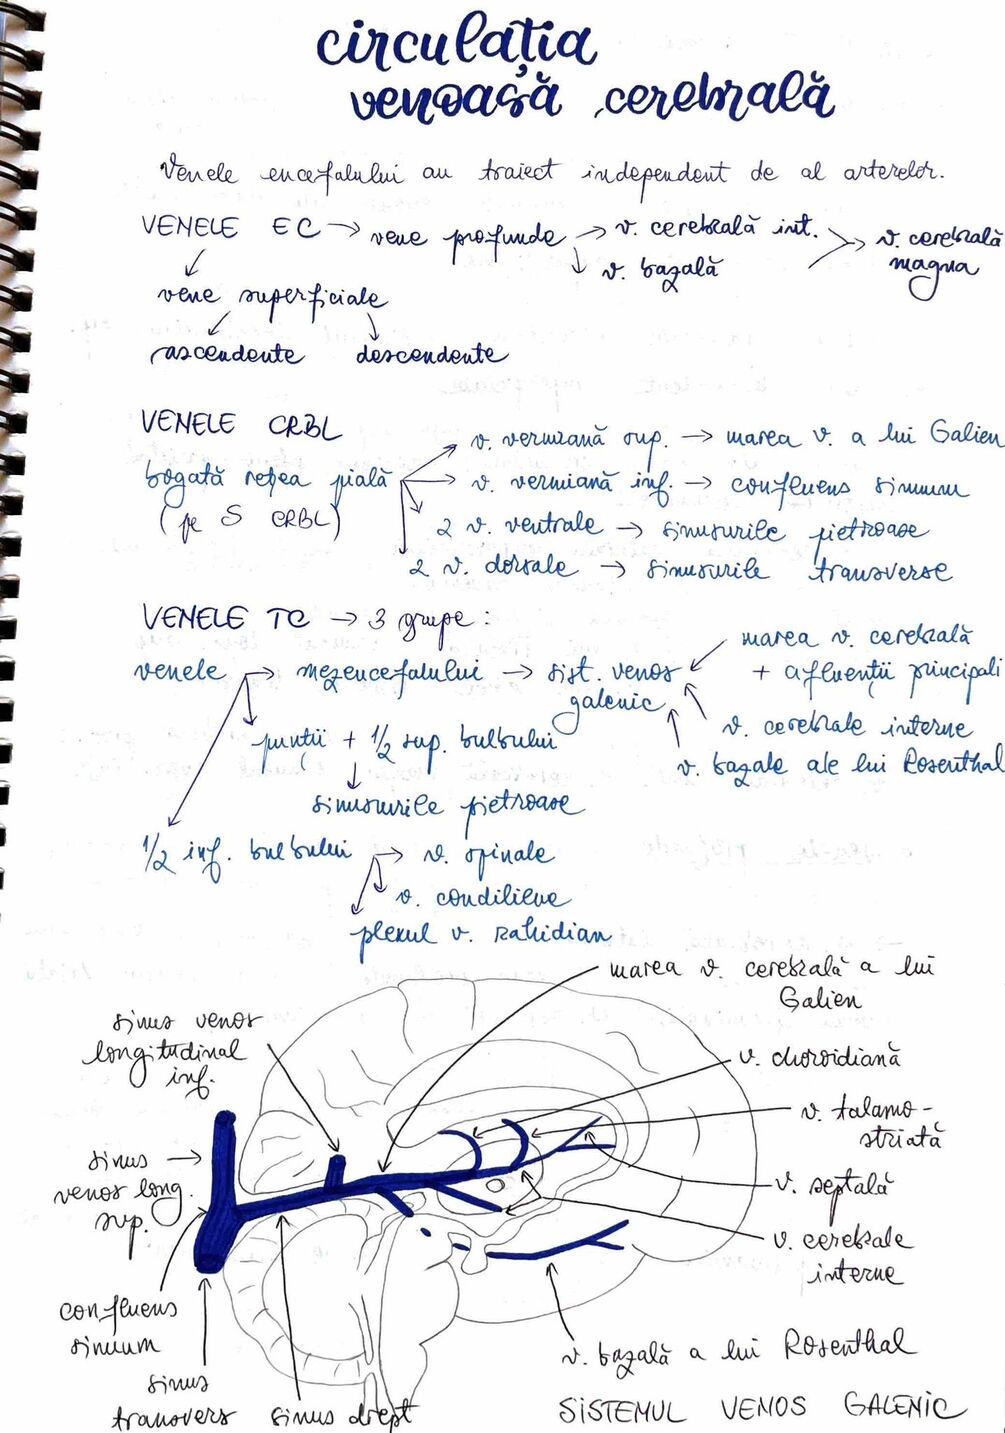 circulația
venoasă cerebrală
Venele encefalului au traiect independent de al arterelor.
VENELE EC → vene profunde → v. cerebrală int. → v. cerebrală
magna
↓ v. bazală
vene superficiale
ascendente descendente
VENELE CRBL
bogată rețea pială
(pe S CRBL)
v. vermiană sup. → marea v. a lui Galien
v. vermiană inf. → confluens sinuum
2 v. ventrale → sinusurile pietroase
2 v. dorsale → sinusurile transverse
VENELE TC → 3 grupe:
venele → mezencefalului → sist. venos
galenic
marea v. cerebrală
+ afluenții principali
v. cerebrale interne
v. bazale ale lui Rosenthal
punții + 1/2 sup. bulbului
↓
sinusurile pietroase
1/2 inf. bulbului → v. spinale
v. condiliene
plexul v. rahidian
marea v. cerebrală a lui
Galien
sinus venos
longitudinal
inf.
v. choroidiană
v. talamo-
striată
sinus →
venos long.
sup.
v. septală
v. cerebrale
interne
confluens
sinuum
v. bazală a lui Rosenthal
sinus
transvers
sinus drept
SISTEMUL VENOS GALENIC